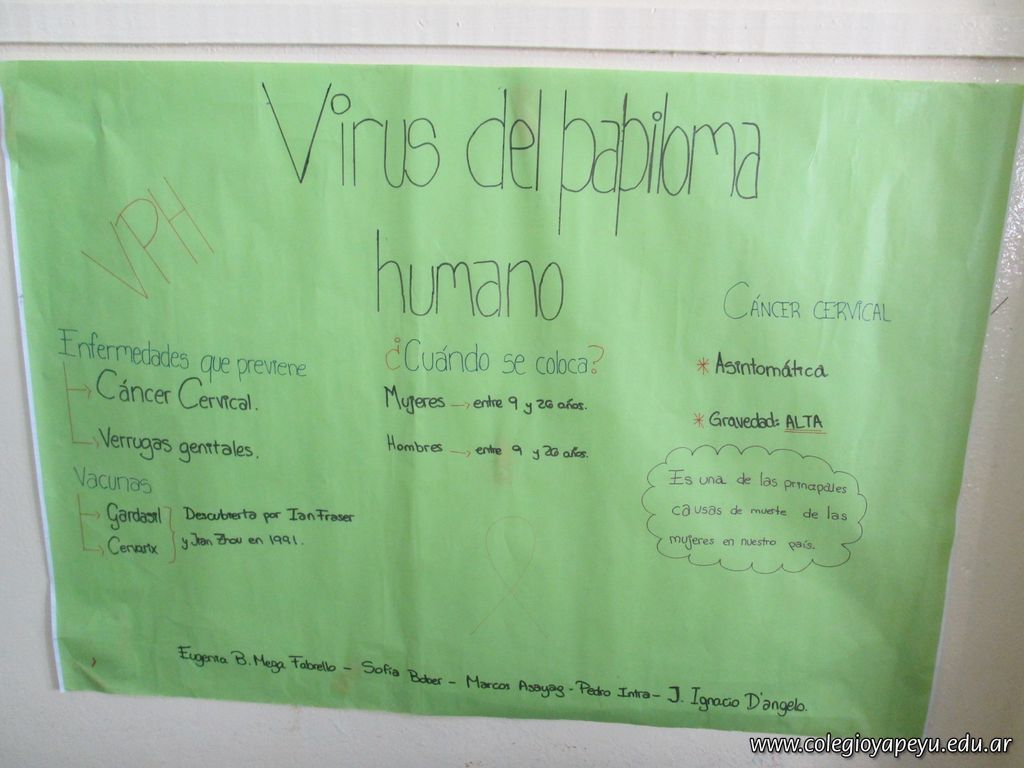 Virus del papiloma
humano
VPH
Enfermedades que previene
Cáncer Cervical.
Verrugas genitales.
Vacunas
Gardasil
Cervarix
Descubierta por Ian Fraser
y Jian Zhou en 1991.
¿Cuándo se coloca?
Mujeres → entre 9 y 26 años.
Hombres → entre 9 y 26 años.
CÁNCER CERVICAL
* Asintomática
* Gravedad: ALTA
Es una de las principales
causas de muerte de las
mujeres en nuestro país.
Eugenia B. Mega Fabrello - Sofía Bober - Marcos Asayag - Pedro Intra - J. Ignacio D'angelo.
www.colegioyapeyu.edu.ar